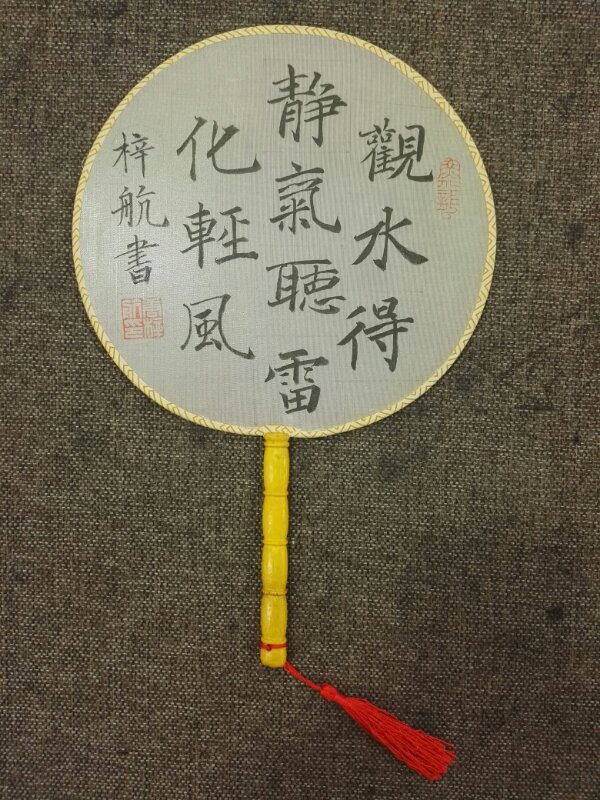 觀水得
靜氣聽雷
化輕風
梓航書